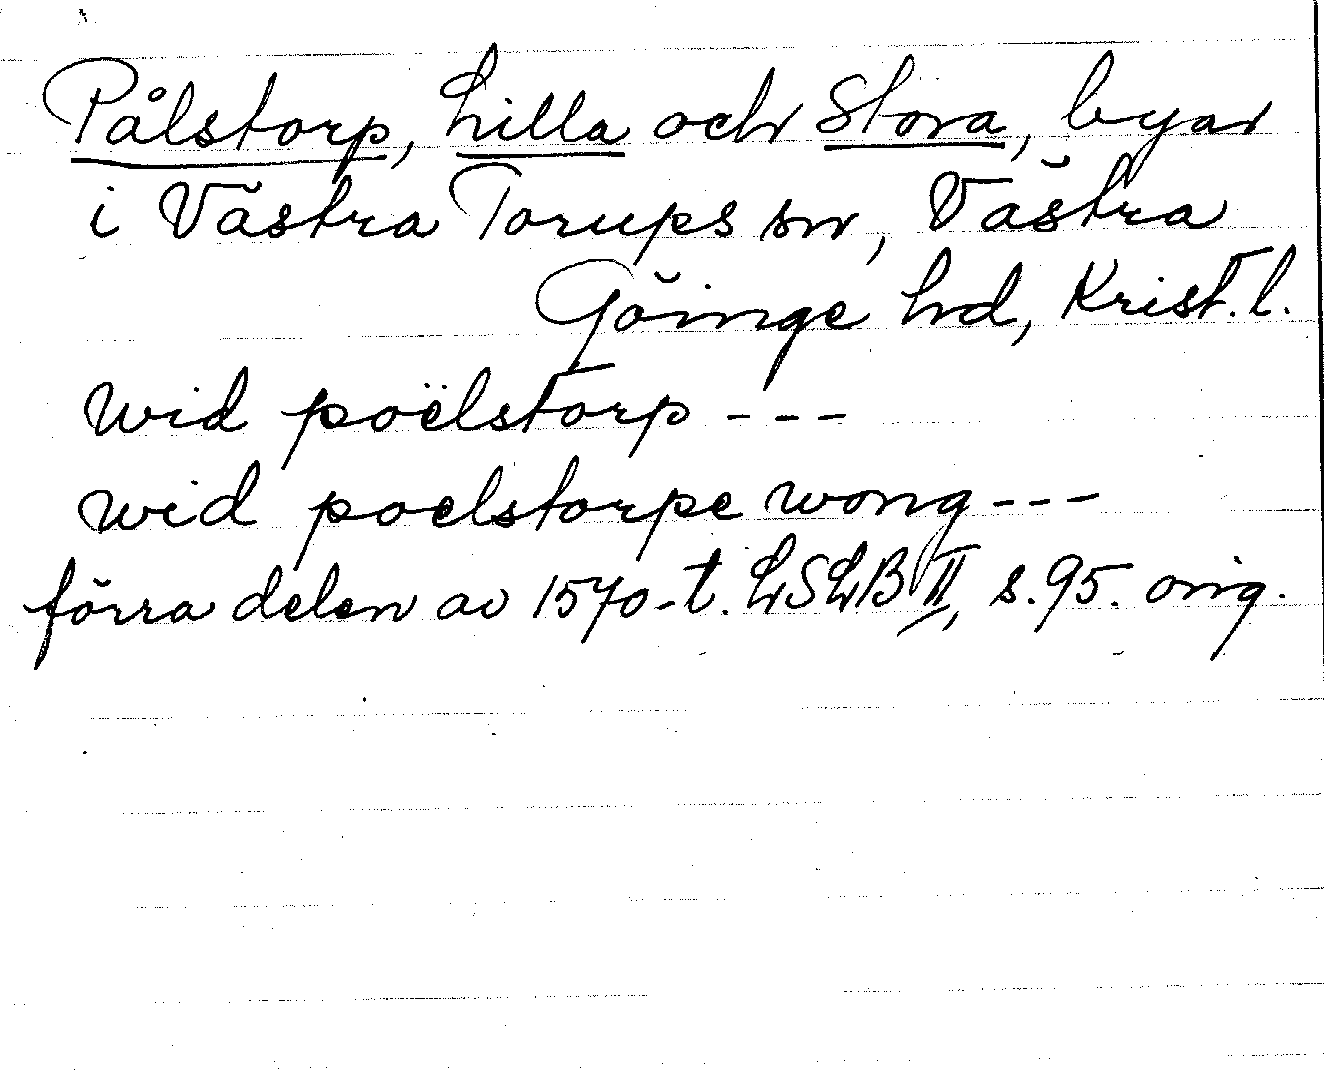 Pålstorp, Lilla och Stora, byar
i Västra Torups sn, Västra
Göinge hd, Krist. l.
wid poëlstorp - - -
wid poelstorpe wong - - -
förra delen av 1570-t. LSLB II, s. 95. orig.